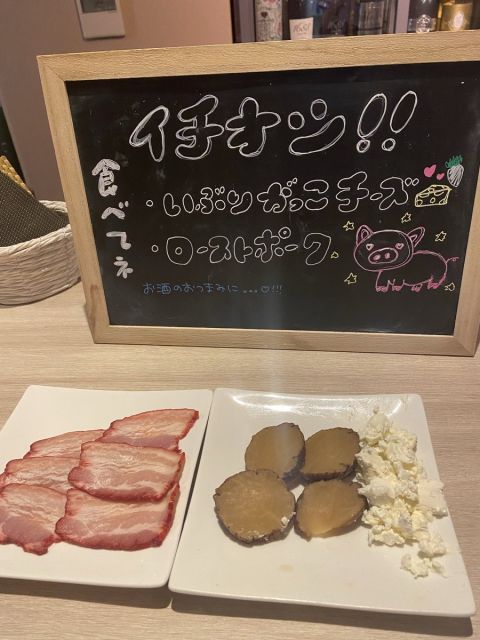 イチオシ!!
食べてネ
・いぶりがっこチーズ
・ローストポーク
お酒のおつまみに...♡!!!